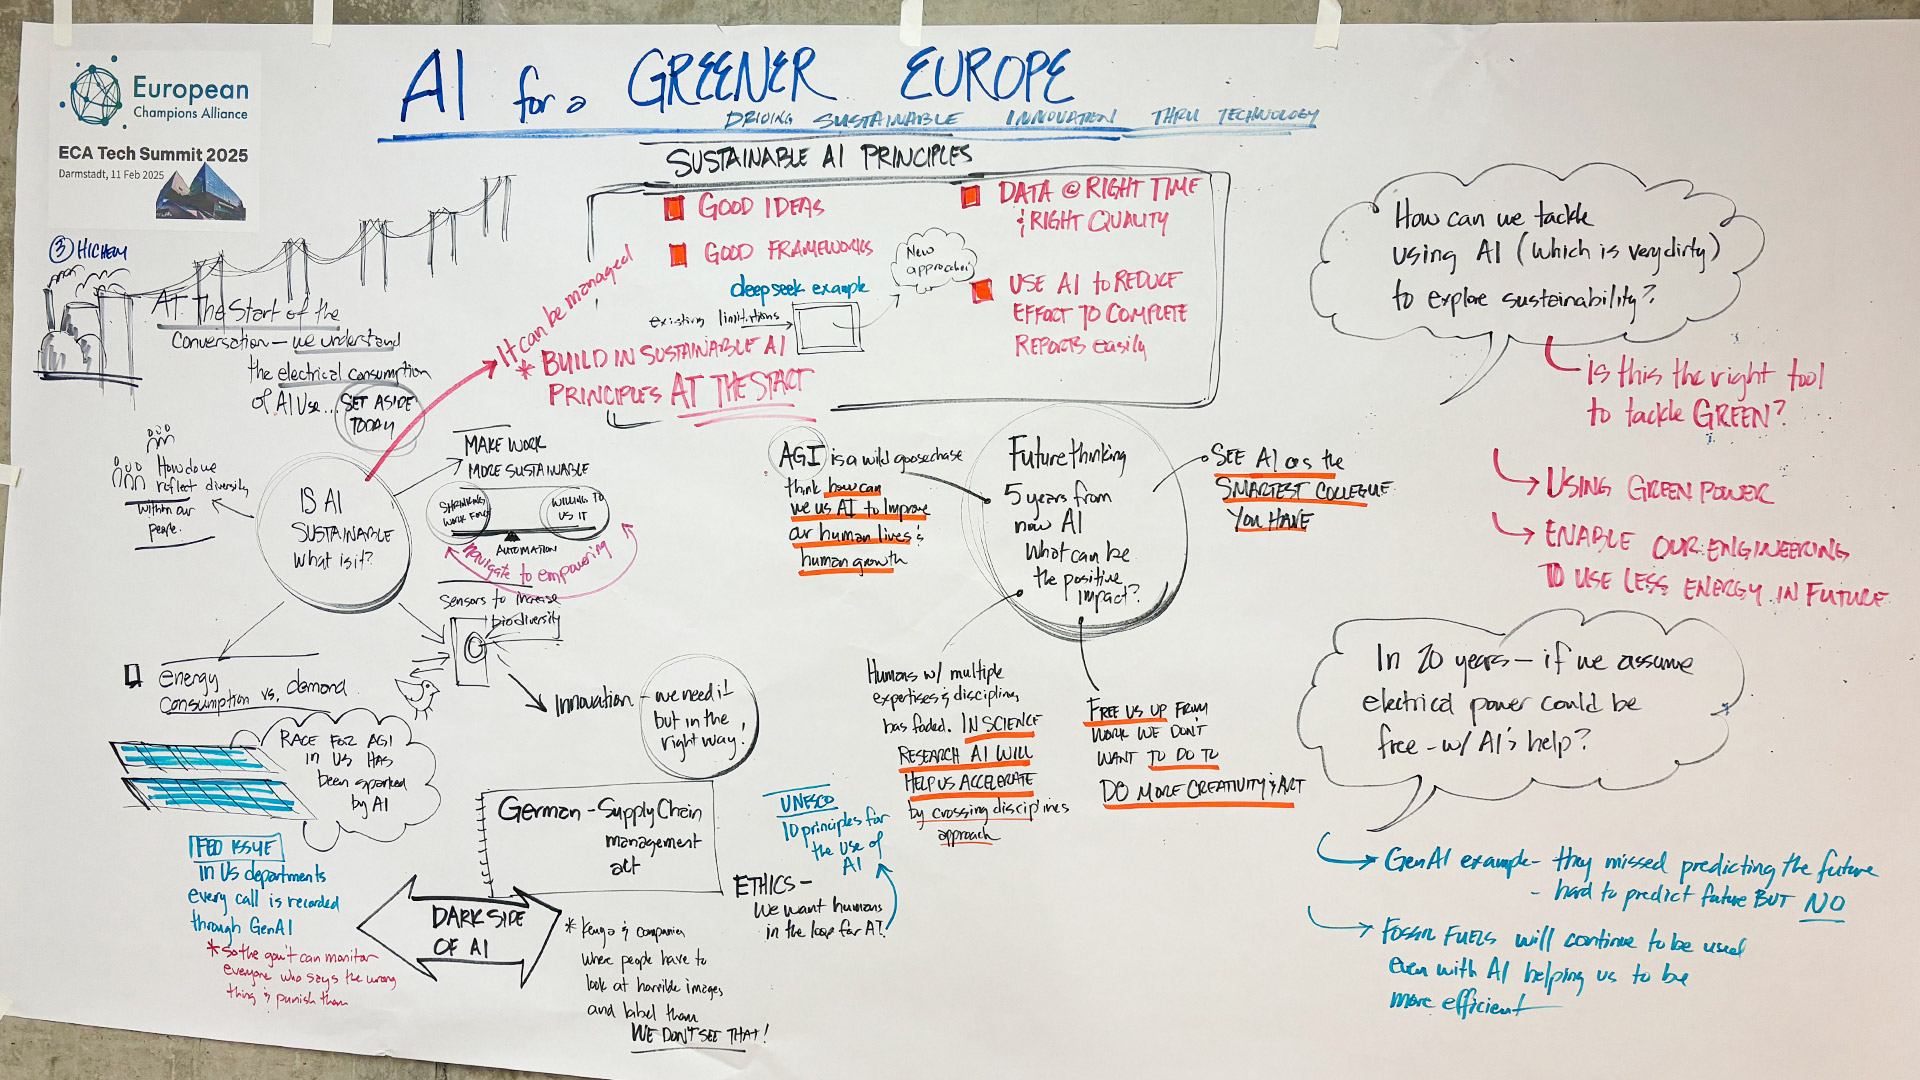 European
Champions Alliance
ECA Tech Summit 2025
Darmstadt, 11 Feb 2025
AI for a GREENER EUROPE
DRIVING SUSTAINABLE INNOVATION THRU TECHNOLOGY
SUSTAINABLE AI PRINCIPLES
GOOD IDEAS
GOOD FRAMEWORKS
deepseek example
existing limitations
New
approaches
DATA @ RIGHT TIME
& RIGHT QUALITY
USE AI to REDUCE
EFFORT TO COMPLETE
REPORTS easily
It can be managed
* BUILD IN SUSTAINABLE AI
PRINCIPLES AT THE START
3 HICHEM
AT The Start of the
Conversation – we understand
the electrical consumption
of AI Use...
SET ASIDE
TODAY
How do we
reflect diversity
within our
people.
IS AI
SUSTAINABLE
what is it?
MAKE WORK
MORE SUSTAINABLE
SHRINKING
WORK FORCE
WILLING TO
US IT
AUTOMATION
navigate to empowering
Sensors to increase
biodiversity
energy
Consumption vs. demand
Innovation – we need it
but in the
right way!
RACE FOR AGI
IN US HAS
been sparked
by AI
FED ISSUE
IN US departments
every call is recorded
through GenAI
* So the gov't can monitor
everyone who says the wrong
thing & punish them
German – Supply Chain
management
act
DARK SIDE
OF AI
* Kenya & companies
where people have to
look at horrilde images
and label them
WE DON'T SEE THAT!
UNESCO
10 principles for
the use of
AI
ETHICS –
We want humans
in the loop for AI.
AGI is a wild goosechase
think how can
we us AI to Improve
our human lives &
human growth
Future thinking
5 years from
now AI
What can be
the positive
impact?
SEE AI as the
SMARTEST COLLEGUE
YOU HAVE
Humans w/ multiple
expertises & disciplines
has faded. IN SCIENCE
RESEARCH AI WILL
HELP US ACCELERATE
by crossing disciplines
approach
FREE US UP FROM
WORK WE DON'T
WANT TO DO TO
DO MORE CREATIVITY & ART
How can we tackle
using AI (which is very dirty)
to explore sustainability?
Is this the right tool
to tackle GREEN?
USING GREEN POWER
ENABLE OUR ENGINEERING
TO USE LESS ENERGY IN FUTURE
In 20 years – if we assume
electrical power could be
free – w/ AI's help?
GenAI example – they missed predicting the future
- hard to predict future BUT NO
FOSSIL FUELS will continue to be used
even with AI helping us to be
more efficient